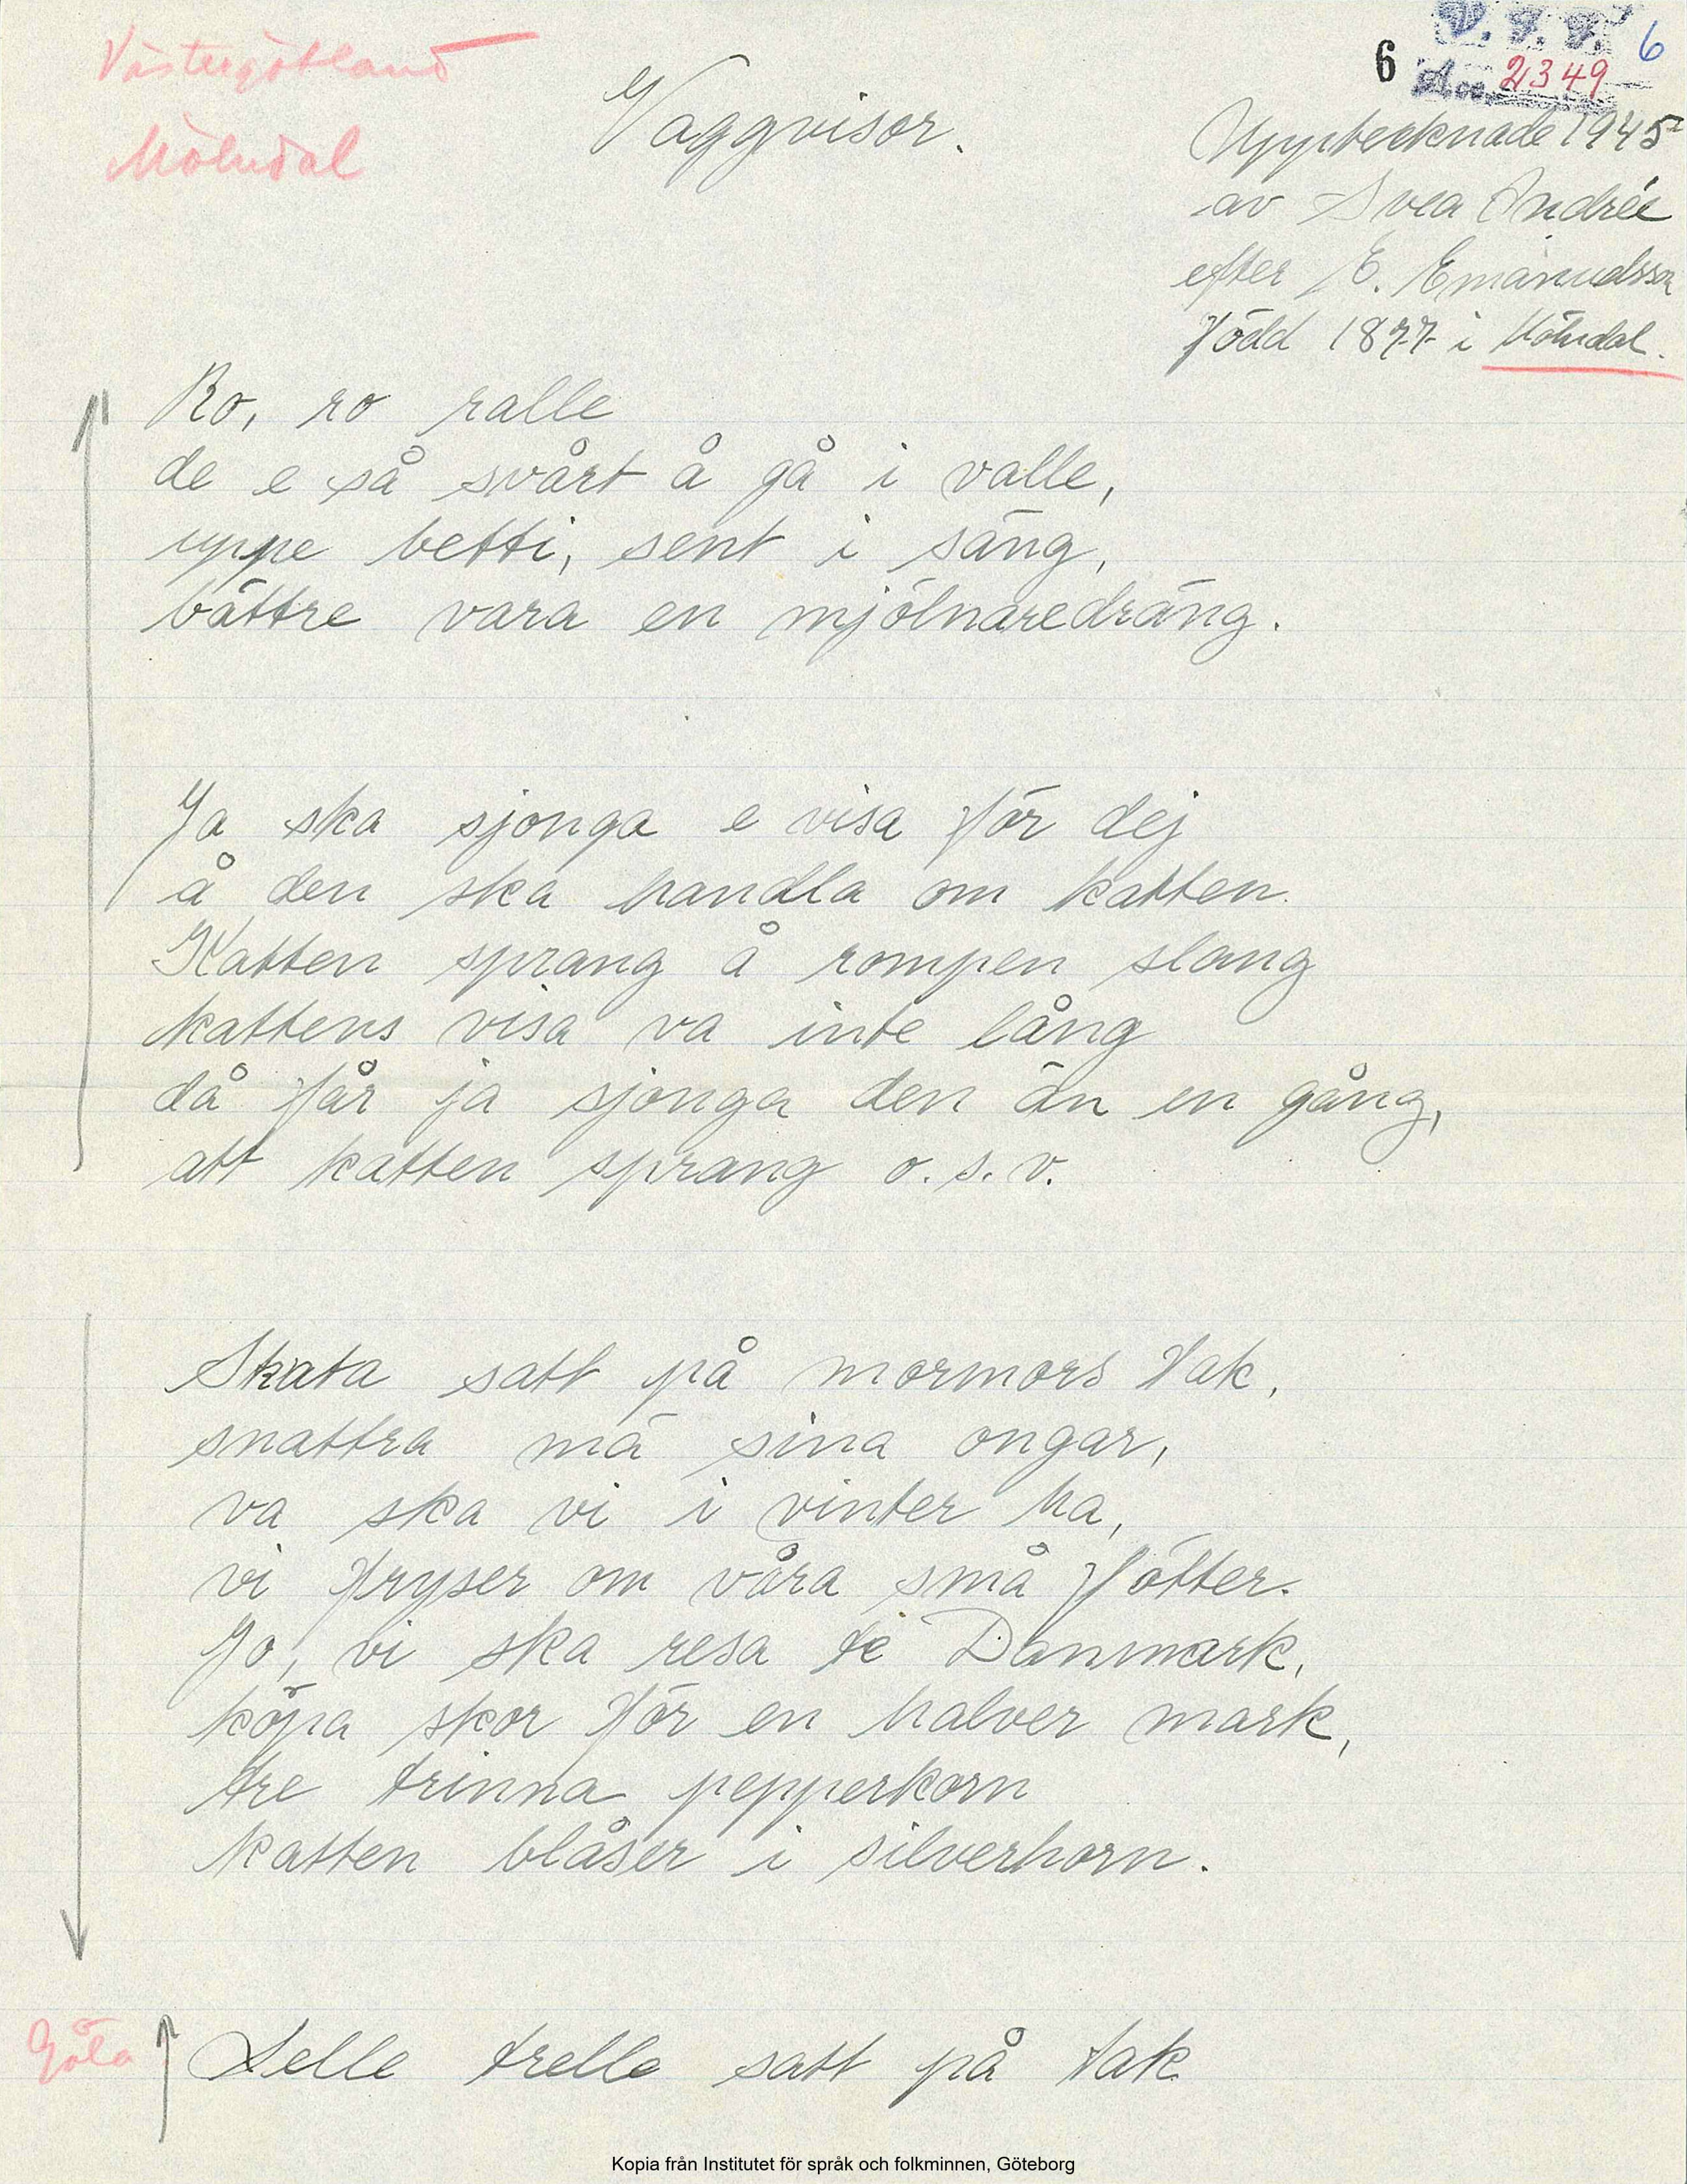 Västergötland
Mölndal
6
V. F. F. 6
Acc. 2349
Vaggvisor.
Upptecknade 1945
av Svea Andrée
efter E. Emanuelsson
född 1877 i Mölndal.
Ro, ro ralle
de e så svårt å gå i valle,
uppe betti, sent i säng,
bättre vara en mjölnaredräng.
Ja ska sjonga e visa för dej
å den ska handla om katten.
Katten sprang å rompen slang
kattens visa va inte lång
då får ja sjonga den än en gång,
att katten sprang o.s.v.
Skata satt på mormors tak,
snattra mä sina ongar,
va ska vi i vinter ha,
vi fryser om våra små fötter.
Jo, vi ska resa te Danmark,
köpa skor för en halver mark,
tre trinna pepperkorn
katten blåser i silverhorn.
Gåta
Lelle trelle satt på tak
Kopia från Institutet för språk och folkminnen, Göteborg